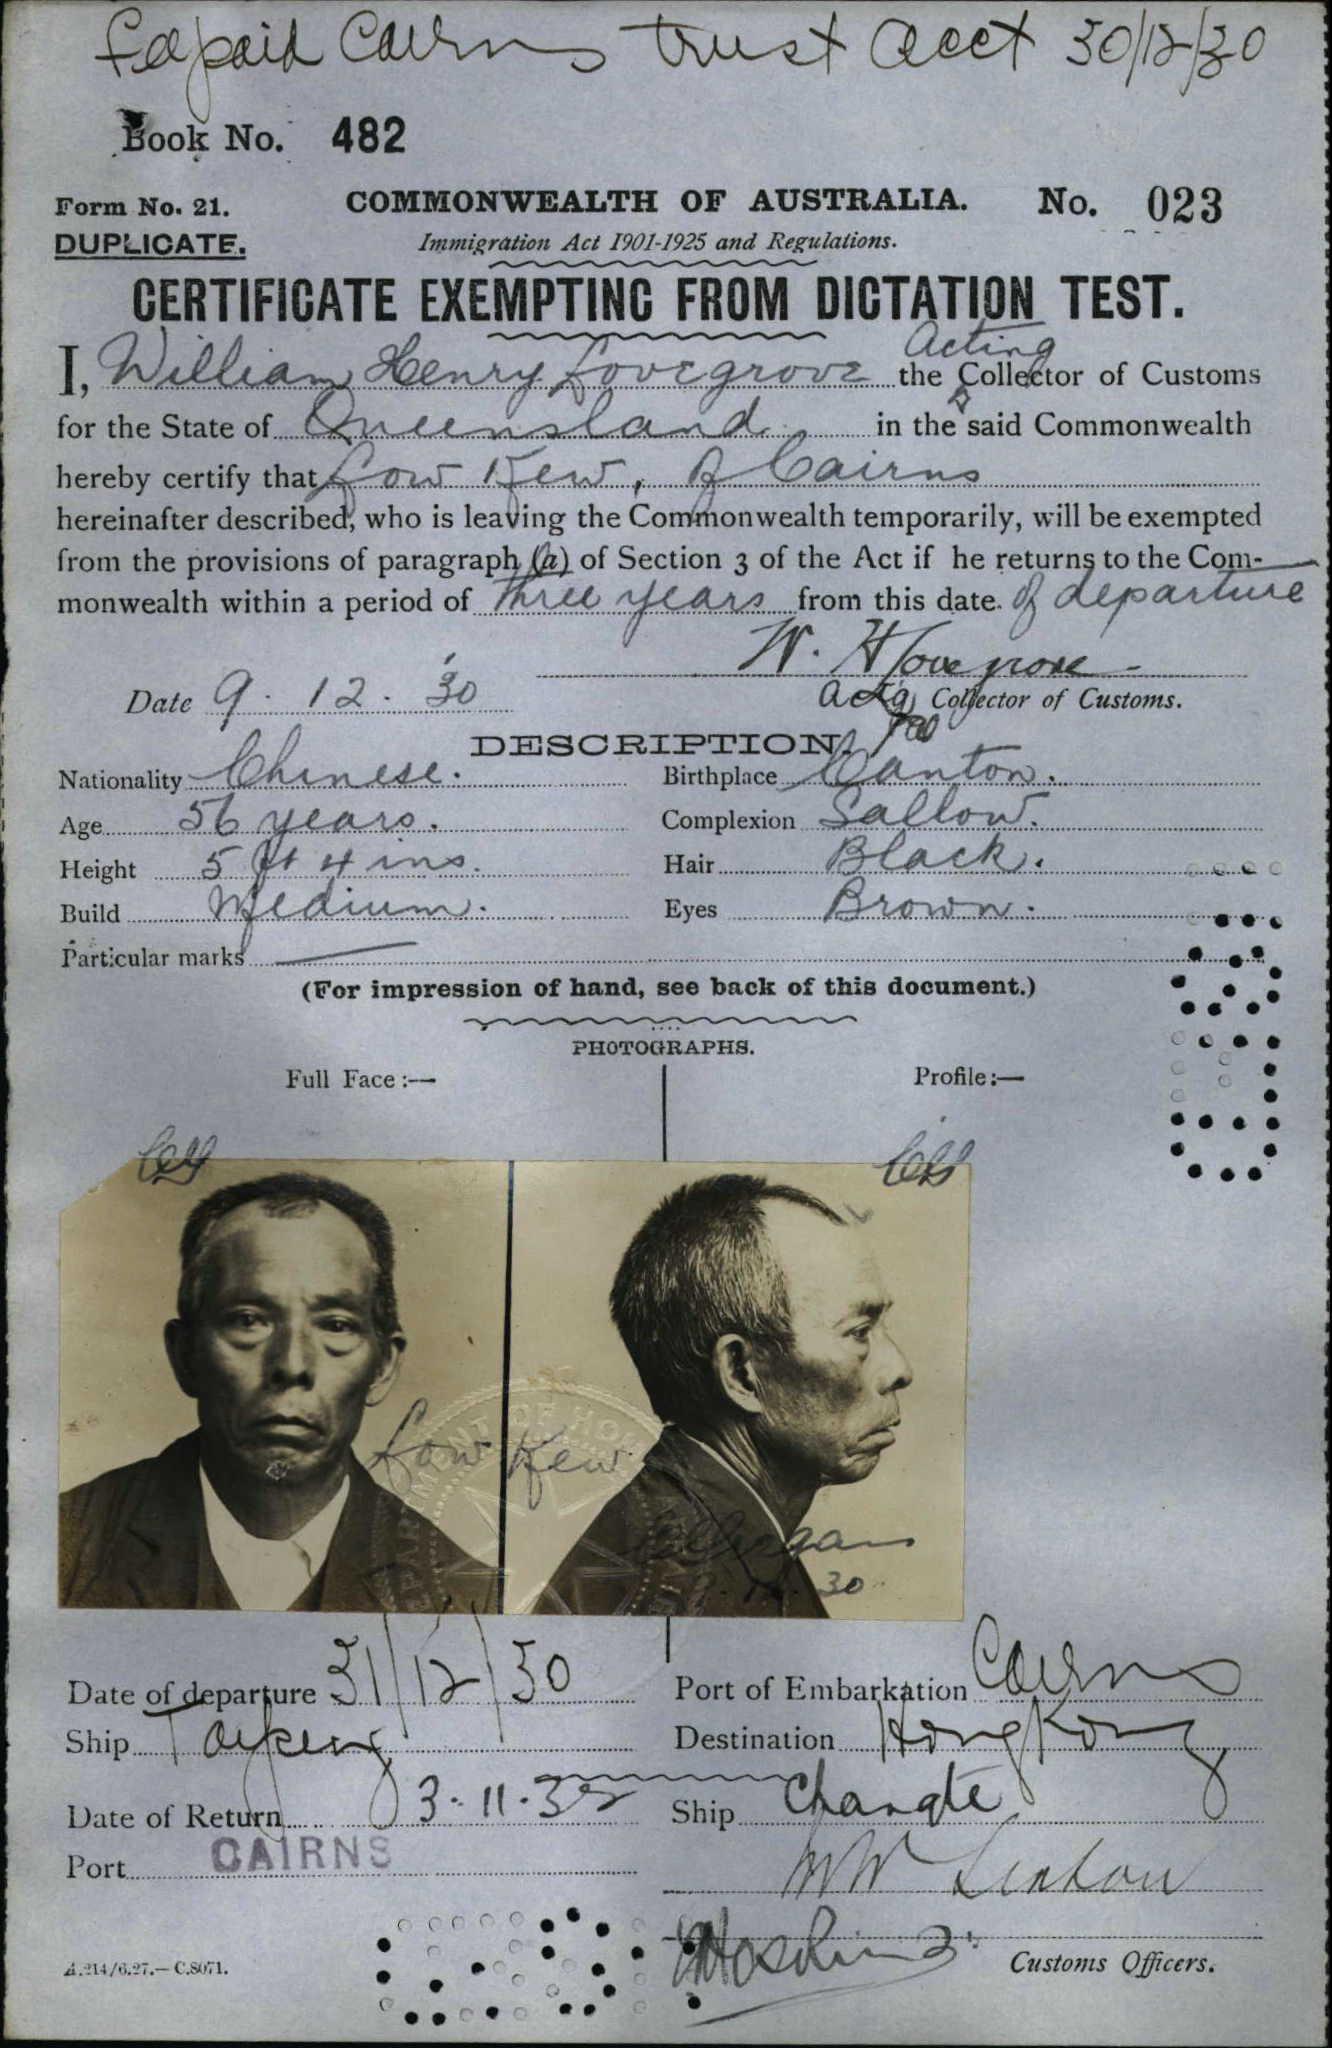 Fee paid Cairns Trust Acct 30/12/30
Book No. 482
Form No. 21. COMMONWEALTH OF AUSTRALIA. No. 023
DUPLICATE. Immigration Act 1901-1925 and Regulations.
CERTIFICATE EXEMPTING FROM DICTATION TEST.
Acting
I, William Henry Lovegrove the Collector of Customs
for the State of Queensland in the said Commonwealth
hereby certify that Low Kew, of Cairns
hereinafter described, who is leaving the Commonwealth temporarily, will be exempted
from the provisions of paragraph (a) of Section 3 of the Act if he returns to the Com-
monwealth within a period of three years from this date of departure
W. H Lovegrove
Date 9.12.30 Actg Collector of Customs.
DESCRIPTION.
Nationality Chinese. Birthplace Canton.
Age 56 years. Complexion Sallow.
Height 5 ft 4 ins. Hair Black.
Build Medium. Eyes Brown.
Particular marks —
(For impression of hand, see back of this document.)
PHOTOGRAPHS.
Full Face:— Profile:—
Low Kew
30
Date of departure 31/12/30 Port of Embarkation Cairns
Ship Taiping Destination Hong Kong
Date of Return 3.11.32 Ship Changte
Port CAIRNS
A.214/6.27.—C.8071. Customs Officers.